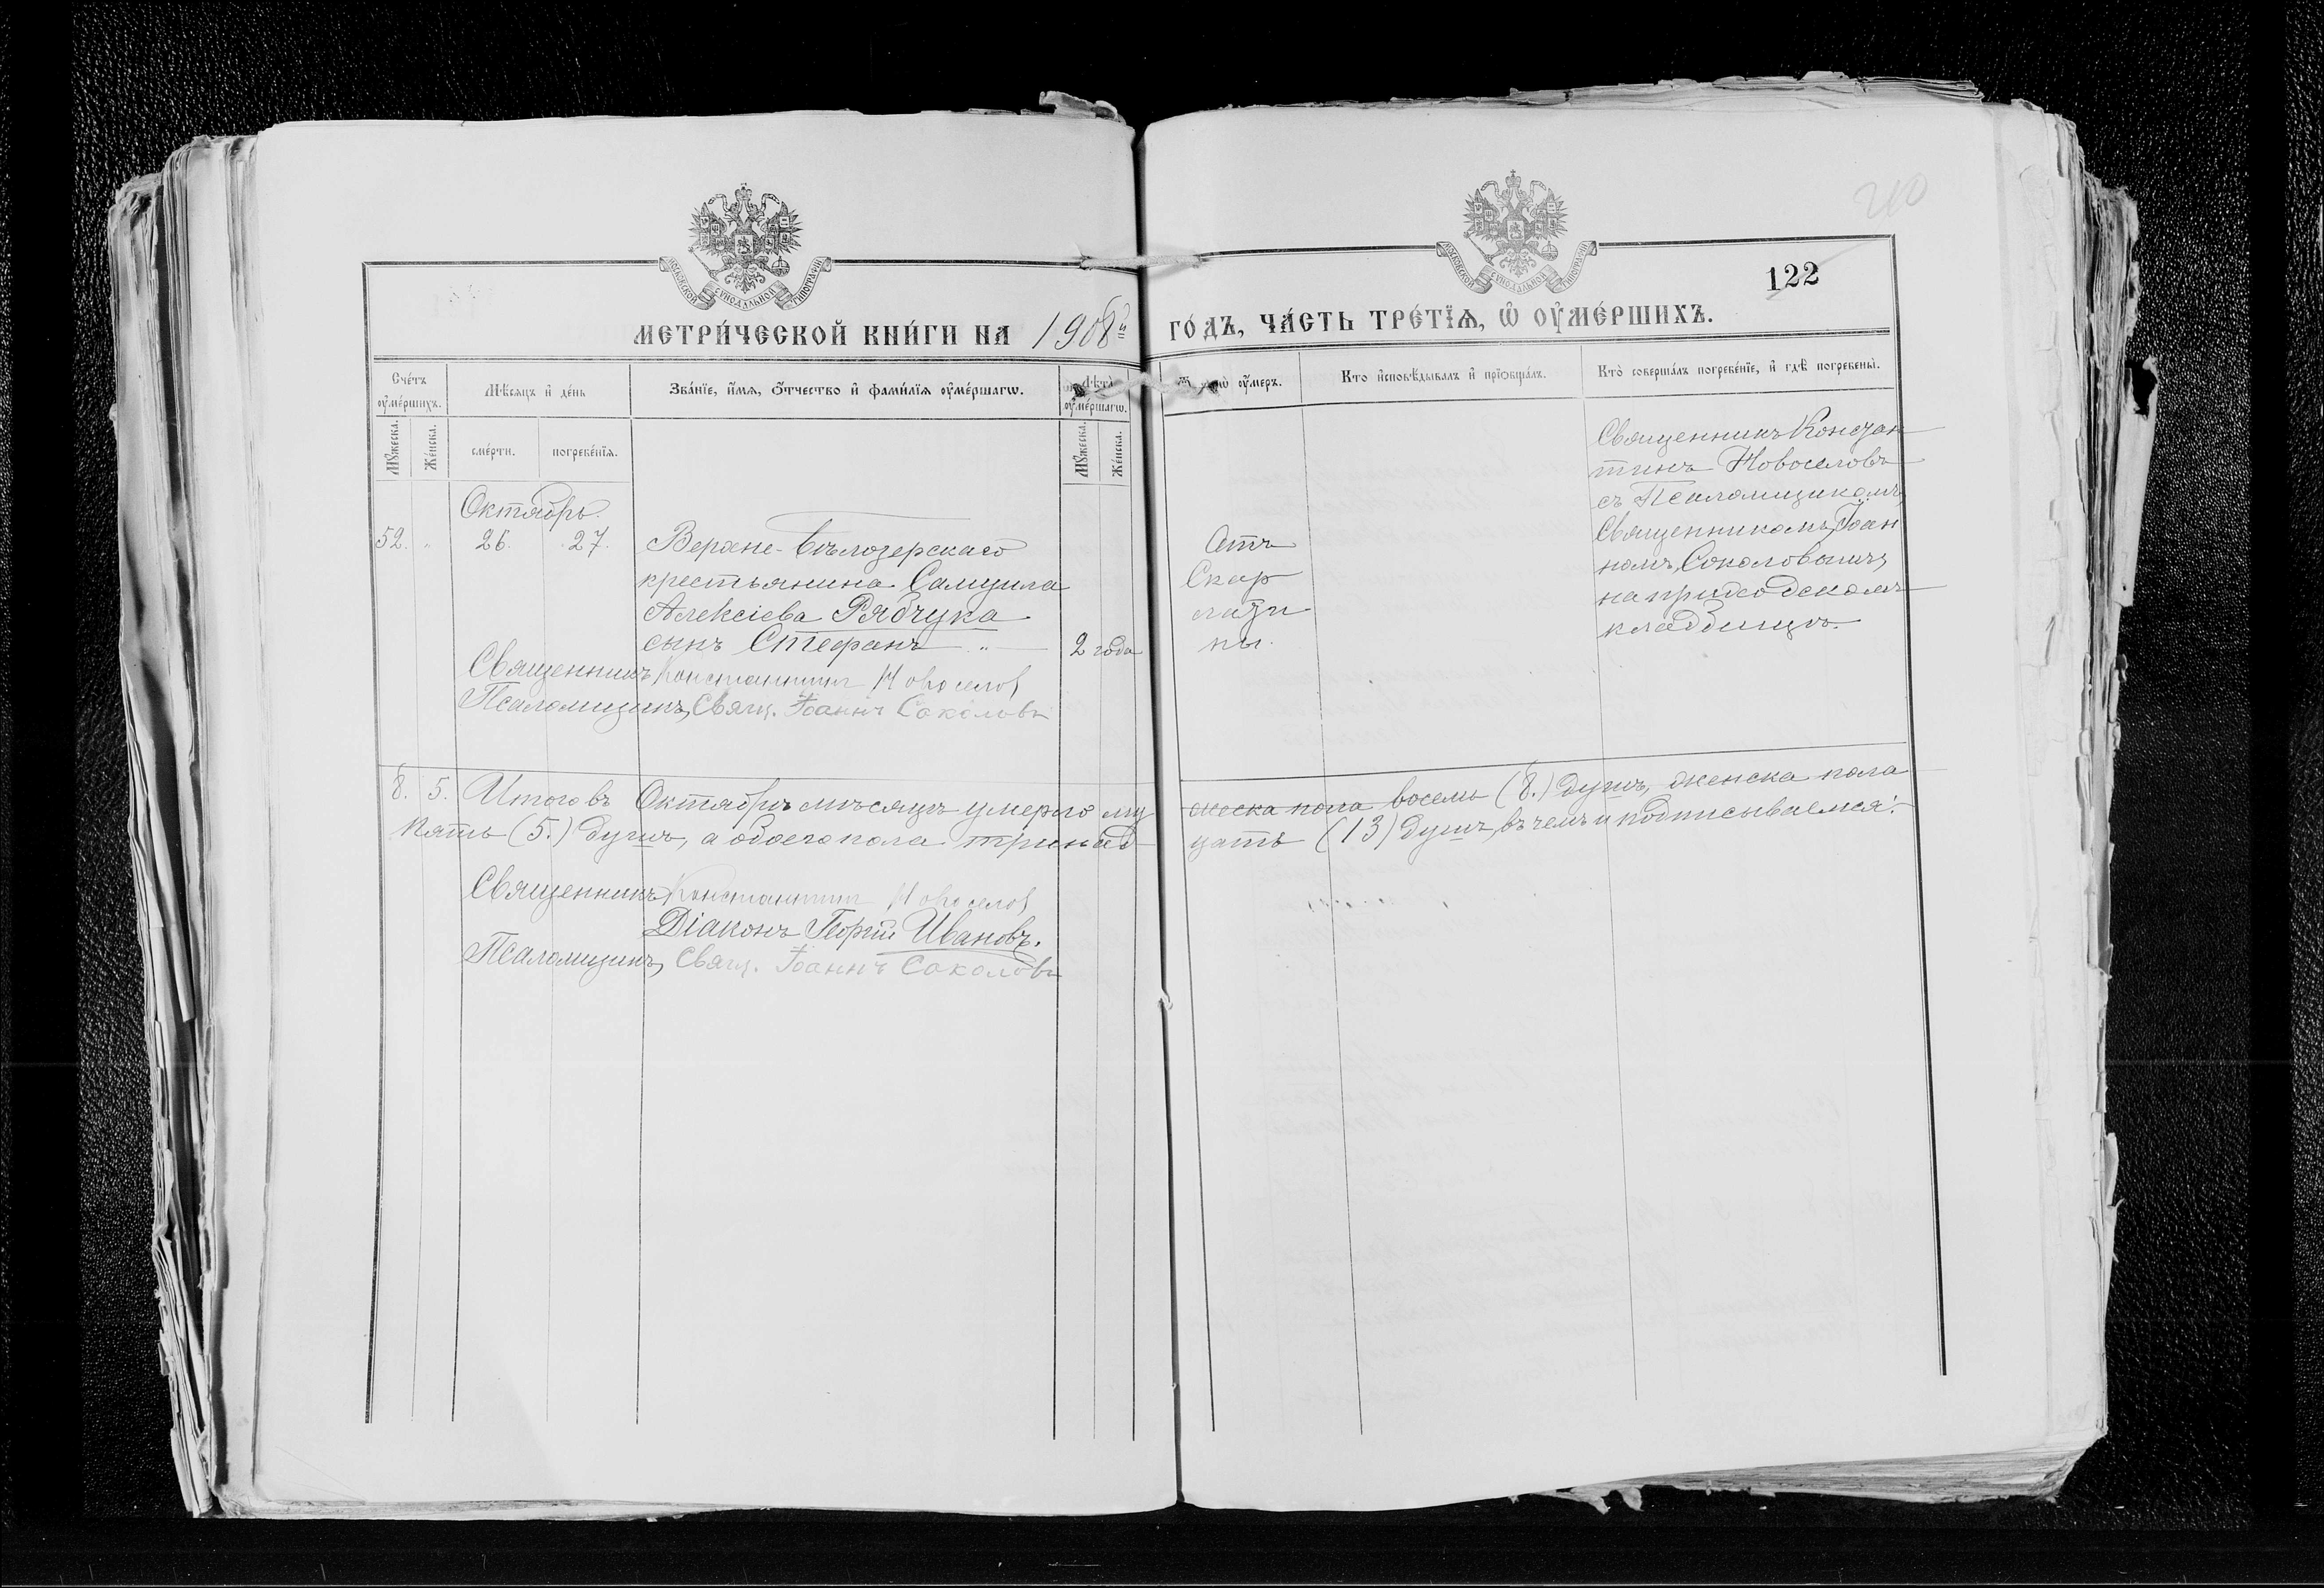 210
122
МЕТРИ́ЧЕСКОЙ КНИ́ГИ НА 1908й ГО́ДЪ, ЧА́СТЬ ТРЕ́ТЇѦ, Ѡ ОУ҆МЕ́РШИХЪ.
Сче́тъ оу҆ме́ршихъ.
Мꙋ́жеска.
Же́нска.
Мѣ́сяцъ и҆ де́нь
сме́рти.
погребе́нїѧ.
Зва́нїе, и҆́мѧ, ѻ҆́тчество и҆ фами́лїѧ оу҆ме́ршагѡ.
Лѣ́та оу҆ме́ршагѡ.
Мꙋ́жеска.
Же́нска.
оу҆́меръ.
Кто̀ и҆сповѣ́дывалъ и҆ прїѡбща́лъ.
Кто̀ соверша́лъ погребе́нїе, и҆ гдѣ̀ погребены̀.
Октябрь.
52. „ 26. 27.
Верхне-Бѣлозерскаго
крестьянина Самуила
Алексіева Рябчука
сынъ Стефанъ „
2 года
Отъ
Скар
лати
ны.
Священникъ Констан
тинъ Новоселовъ
съ Псаломщикомъ,
Священникомъ, Іоан
номъ, Соколовымъ,
на приходскомъ
кладбищѣ.
Священникъ Константин Новоселов
Псаломщикъ, Свящ. Іоаннъ Соколовъ
8. 5. Итого въ Октябрѣ мѣсяцѣ умерло му
жеска пола восемь (8.) душъ, женска пола
пять (5.) душъ, а обоего пола тринад
цать (13) душъ, въ чемъ и подписываемся:
Священникъ Константин Новоселов
Діаконъ Георгій Ивановъ.
Псаломщикъ, Свящ. Іоаннъ Соколовъ